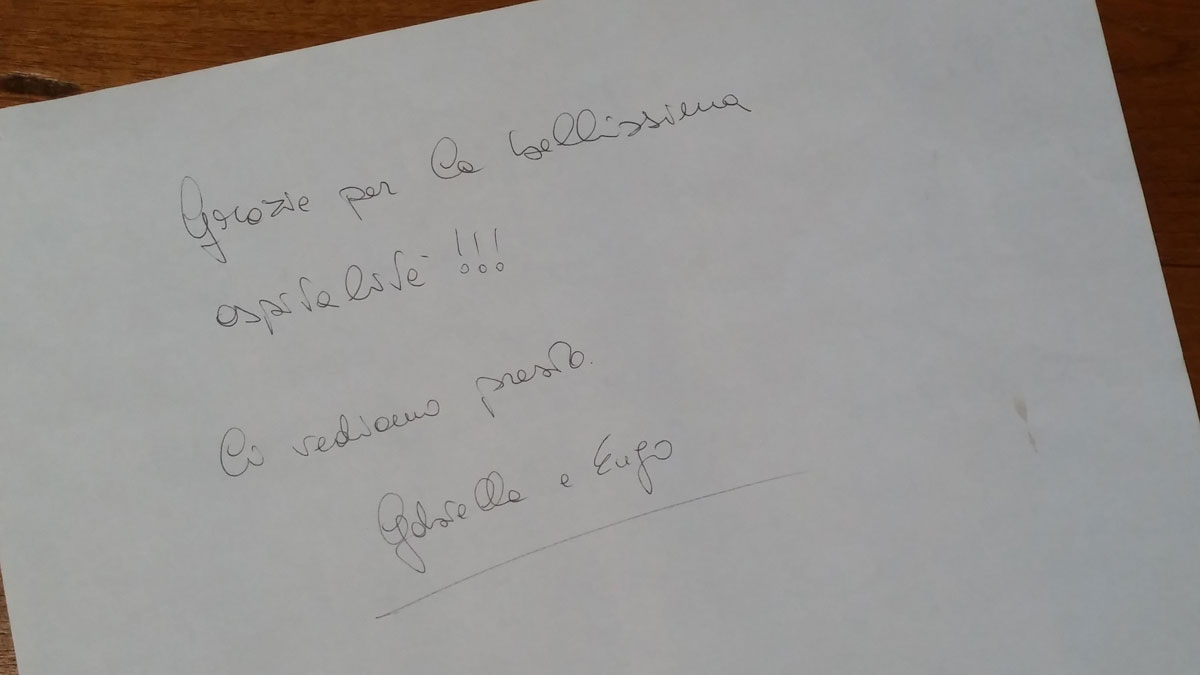 Grazie per la bellissima
ospitalità !!!
Ci vediamo presto.
Gabriella e